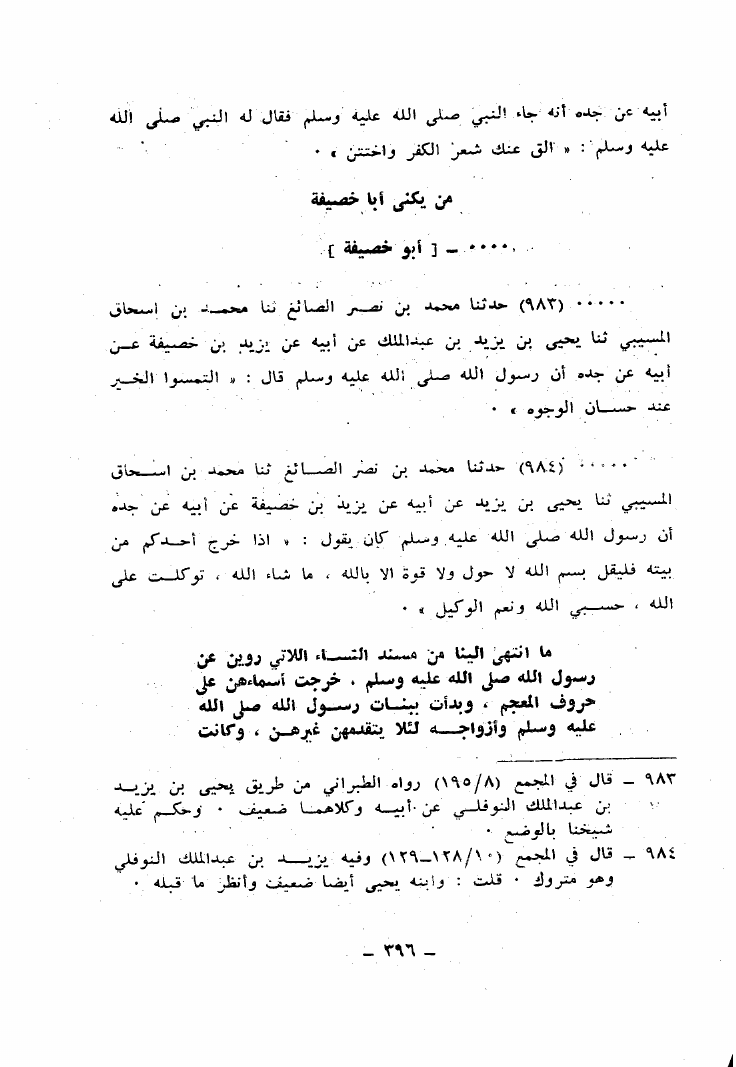 أبيه عن جده أنه جاء النبي صلى الله عليه وسلم فقال له النبي صلى الله
عليه وسلم : « الق عنك شعر الكفر واختتن » ٠
من يكنى أبا خصيفة
٠٠٠٠ ـ [ أبو خصيفة ]
٠٠٠٠٠ (٩٨٣) حدثنا محمد بن نصر الصائغ ثنا محمد بن اسحاق
المسيبي ثنا يحيى بن يزيد بن عبدالملك عن أبيه عن يزيد بن خصيفة عن
أبيه عن جده أن رسول الله صلى الله عليه وسلم قال : « التمسوا الخير
عند حسان الوجوه » ٠
٠٠٠٠٠ (٩٨٤) حدثنا محمد بن نصر الصائغ ثنا محمد بن اسحاق
المسيبي ثنا يحيى بن يزيد عن أبيه عن يزيد بن خصيفة عن أبيه عن جده
أن رسول الله صلى الله عليه وسلم كان يقول : « اذا خرج أحدكم من
بيته فليقل بسم الله لا حول ولا قوة الا بالله ، ما شاء الله ، توكلت على
الله ، حسبي الله ونعم الوكيل » ٠
ما انتهى الينا من مسند النساء اللاتي روين عن
رسول الله صلى الله عليه وسلم ، خرجت أسماءهن على
حروف المعجم ، وبدأت ببنات رسول الله صلى الله
عليه وسلم وأزواجه لئلا يتقدمهن غيرهن ، وكانت
٩٨٣ ـ قال في المجمع (١٩٥/٨) رواه الطبراني من طريق يحيى بن يزيد
بن عبدالملك النوفلي عن أبيه وكلاهما ضعيف ٠ وحكم عليه
شيخنا بالوضع ٠
٩٨٤ ـ قال في المجمع (١٢٨/١٠ـ١٢٩) وفيه يزيد بن عبدالملك النوفلي
وهو متروك ٠ قلت : وابنه يحيى أيضا ضعيف وأنظر ما قبله ٠
ـ ٣٩٦ ـ